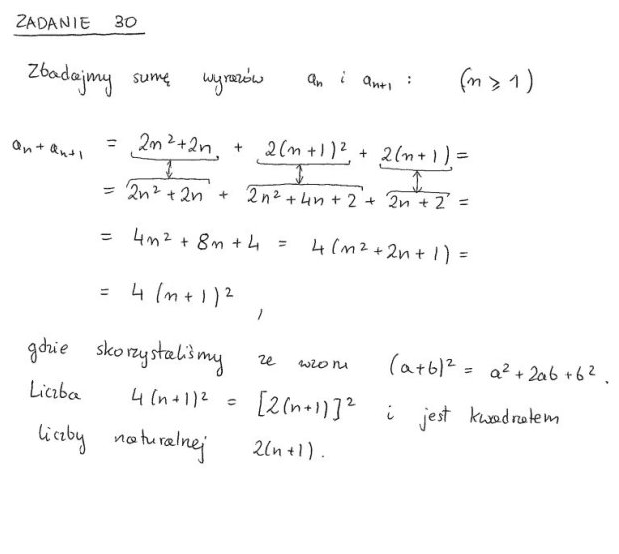 ZADANIE 30
Zbadajmy sumę wyrazów aₙ i aₙ₊₁ : (n ⩾ 1)
aₙ + aₙ₊₁ = 2n² + 2n + 2(n+1)² + 2(n+1) =
= 2n² + 2n + 2n² + 4n + 2 + 2n + 2 =
= 4n² + 8n + 4 = 4(n² + 2n + 1) =
= 4(n+1)² ,
gdzie skorzystaliśmy ze wzoru (a+b)² = a² + 2ab + b² .
Liczba 4(n+1)² = [2(n+1)]² i jest kwadratem
liczby naturalnej 2(n+1).